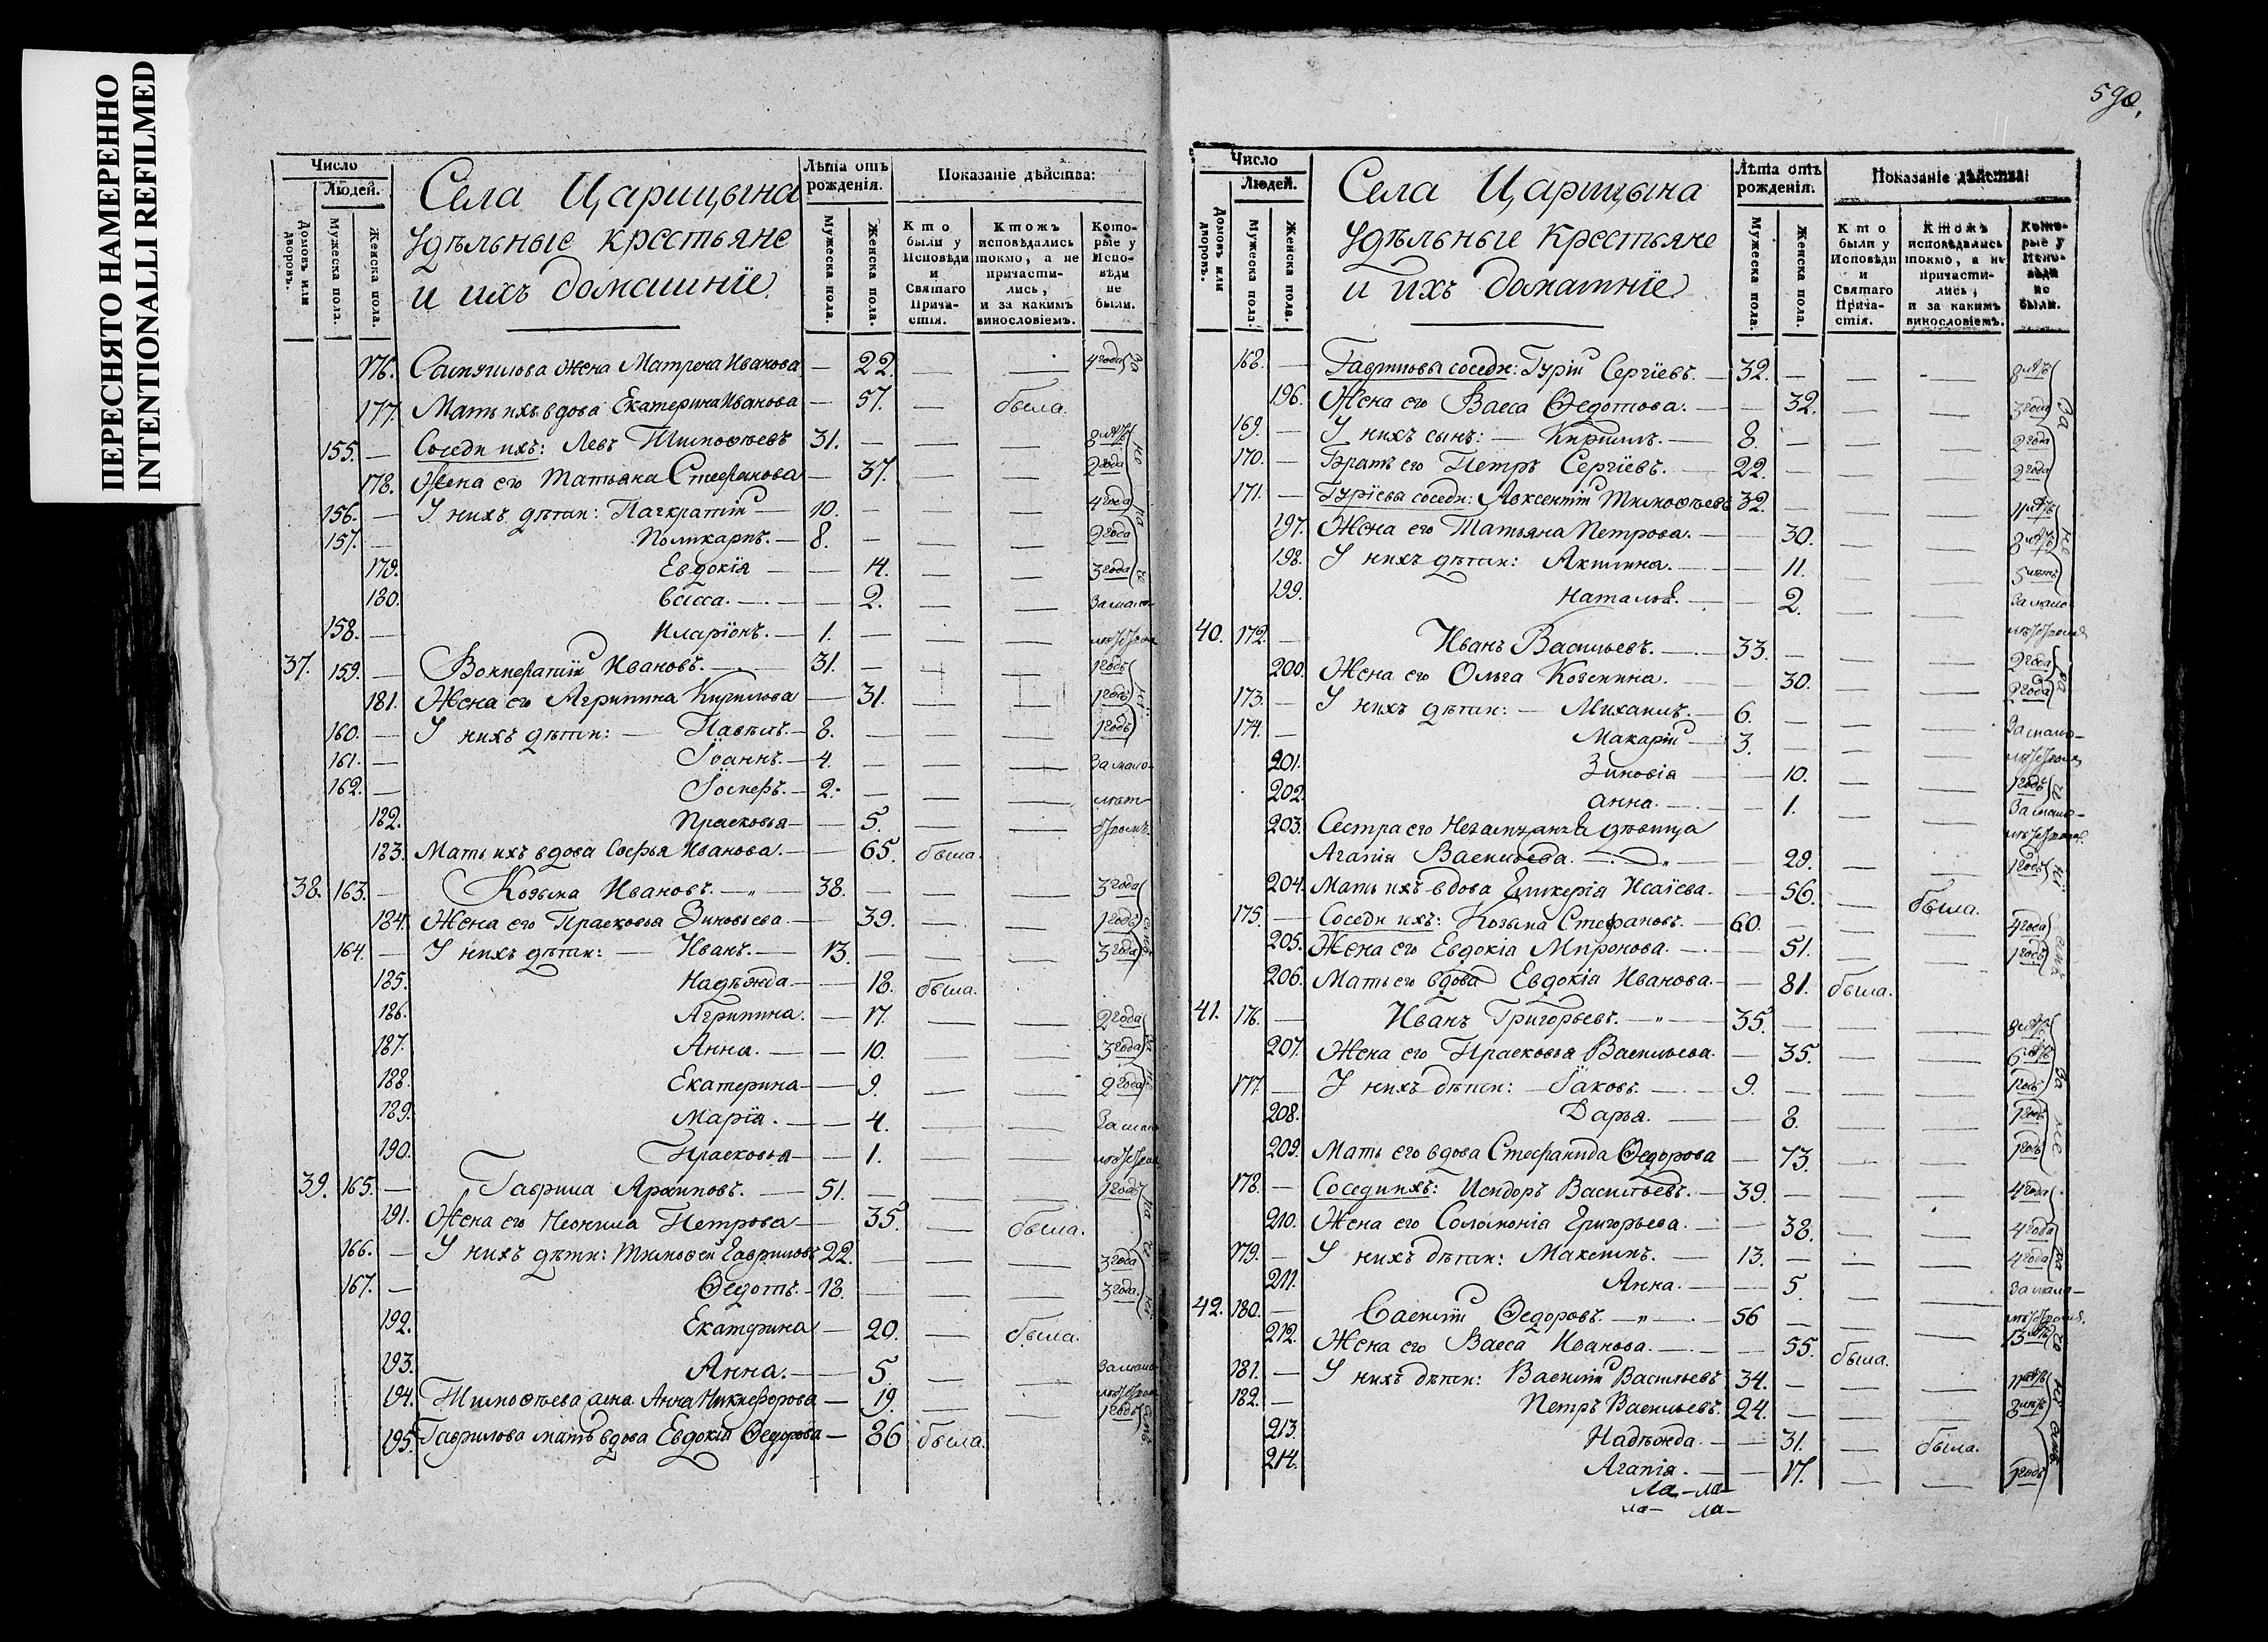 ПЕРЕСНЯТО НАМЕРЕННО
INTENTIONALLI REFILMED
Число
Людей.
Домовъ или дворовъ.
Мужеска пола.
Женска пола.
Села Царицына
Удѣльные крестьяне
и ихъ домашніе.
Лѣта отъ рожденія.
Мужеска пола.
Женска пола.
Показаніе дѣйства:
Кто были у Исповѣди и Святаго Прича-стія.
Ктожъ исповѣдались токмо, а не причасти-лись, и за какимъ винословіемъ.
Кото-рые у Испо-вѣди не были.
176. жена Матрена Иванова — 22. — — 4 года
177. Мать ихъ вдова Екатерина Иванова — 57. — была.
155. — Соседи ихъ: Левъ Тимофеевъ 31. — — —
178. Жена его Татьяна Стефанова — 37. — — 2 года
156. — У нихъ дѣти: Панкратій — 10. — — — 4 года
157. — Поликарпъ. — 8. — — — 2 года
179. Евдокія — — 14. — — 3 года
180. Васса. — — 2. — — За мало-
158. — Иларіонъ. — 1. — — —
37. 159. — Ивановъ. — 31. — — — 1 годъ
181. Жена его Агрипина Кирилова — 31. — — 1 годъ
160. — У нихъ дѣти: — Павелъ. — 8. — — — 1 годъ
161. — Іоаннъ. — 4. — — — За мало-
162. — Іосифъ. — 2. — — —
182. Прасковья — — 5. — —
183. Мать ихъ вдова Софья Иванова. — — 65. была.
38. 163. — Козьма Ивановъ. — „ — 38. — — — 3 года
184. Жена его Прасковья Зиновьева — — 39. — — 1 годъ
164. — У нихъ дѣти: — Иванъ. — 13. — — — 3 года
185. Надѣжда — — 18. была.
186. Агрипина. — — 17. — — 2 года
187. Анна. — — 10. — — 3 года
188. Екатерина — — 9. — — 2 года
189. Марія. — — 4. — — За мало
190. Прасковья — — 1. — —
39. 165. — Гаврила Архиповъ. — 51. — — — 1 годъ
191. Жена его Неонила Петрова — — 35. — была.
166. — У нихъ дѣти: Тимофей Гавриловъ 22. — — — 3 года
167. — Федотъ. — 18. — — — 3 года.
192. Екатерина — 20. — была.
193. Анна. — — 5. — — За мало
194. Тимофеева жена Анна Никифорова — 19. — — 1 годъ
195. Гаврилова мать вдова Евдокія Федорова — 86 была.
590.
Число
Людей.
Домовъ или дворовъ.
Мужеска пола.
Женска пола.
Села Царицына
Удѣльные крестьяне
и ихъ домашніе.
Лѣта отъ рожденія.
Мужеска пола.
Женска пола.
Показаніе дѣйства:
Кто были у Исповѣди и Святаго Прича-стія.
Ктожъ исповѣдались токмо, а не причасти-лись, и за какимъ винословіемъ.
Кото-рые у Испо-вѣди не были.
168. — Гавриловы соседи: Гурій Сергіевъ. — 32. — — —
196. Жена его Васса Федотова. — — 32. — — 3 года
169. — У нихъ сынъ: — Кирилъ. — 8. — — — 2 года
170. — Братъ его Петръ Сергіевъ. — 22. — — — 2 года
171. — Гуріевы соседи: Авксентій Тимофеевъ 32. — — —
197. Жена его Татьяна Петрова. — — 30. — —
198. У нихъ дѣти: Акилина. — — 11. — —
199. Наталья. — — 2. — — За мало-
40. 172. — Иванъ Васильевъ. — 33. — — — 2 года
200. Жена его Ольга — 30. — — 2 года
173. — У нихъ дѣти: — Михаилъ. — 6. — — — За мало-
174. — Макарій — 3. — — —
201. Зиновія — — 10. — — 1 годъ
202. Анна. — — 1. — — За мало-
203. Сестра его дѣвица
Агапія Васильева. — — 29. — — 1 годъ
204. Мать ихъ вдова Гликерія Исаіева. — 56. — была.
175. — Соседи ихъ: Козьма Стефановъ. — 60. — — — 4 года
205. Жена его Евдокія Миронова. — — 51. — — 1 годъ
206. Мать его вдова Евдокія Иванова. — — 81. была.
41. 176. — Иванъ Григорьевъ. — „ — 35. — — —
207. Жена его Прасковья Васильева. — 35. — —
177. — У нихъ дѣти: — Іаковъ. — 9. — — — 1 годъ
208. Дарья. — — 8. — — 1 годъ
209. Мать его вдова Стефанида Федорова — 73. — — 1 годъ
178. — Соседи ихъ: Исидоръ Васильевъ. — 39. — — — 4 года
210. Жена его Соломонія Григорьева. — — 38. — — 4 года
179. — У нихъ дѣти: Максимъ. — 13. — — — 4 года
211. Анна. — — 5. — — За мало-
42. 180. — Василій Федоровъ. — „ — 56 — — —
212. Жена его Васса Иванова. — — 55. была.
181. — У нихъ дѣти: Василій Васильевъ 34. — — —
182. — Петръ Васильевъ. 24. — — —
213. Надѣжда. — — 31. — была.
214. Агапія. — — 17. — — 1 годъ
ла- ла-
ла- ла-